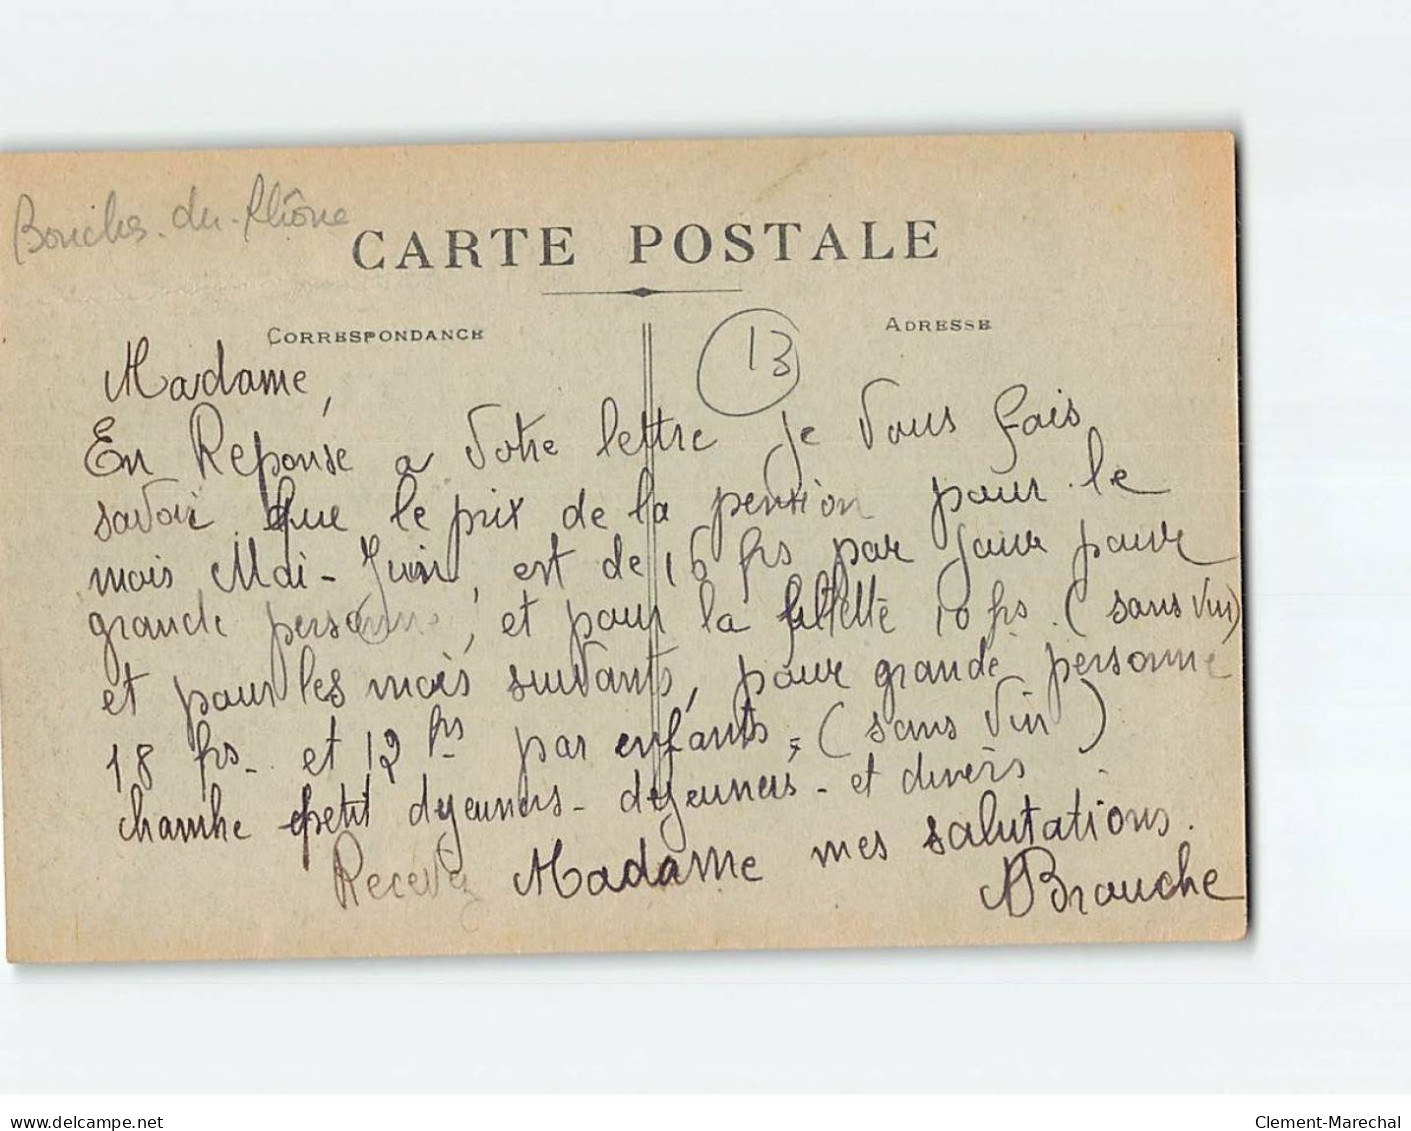 Bouches-du-Rhône
CARTE POSTALE
CORRESPONDANCE
ADRESSE
13
Madame,
En Reponse a votre lettre je vous fais
savoir que le prix de la pension pour le
mois Mai-Juin, est de 16 frs par jour pour
grande personne, et pour la fillette 10 frs. (sans vin)
et pour les mois suivants, pour grande personne
18 frs- et 12 frs par enfants, (sans vin)
chambre petit dejeuners- dejeuners- et diners
Recevez Madame mes salutations.
Brouche
delcampe.net
Clement-Marechal